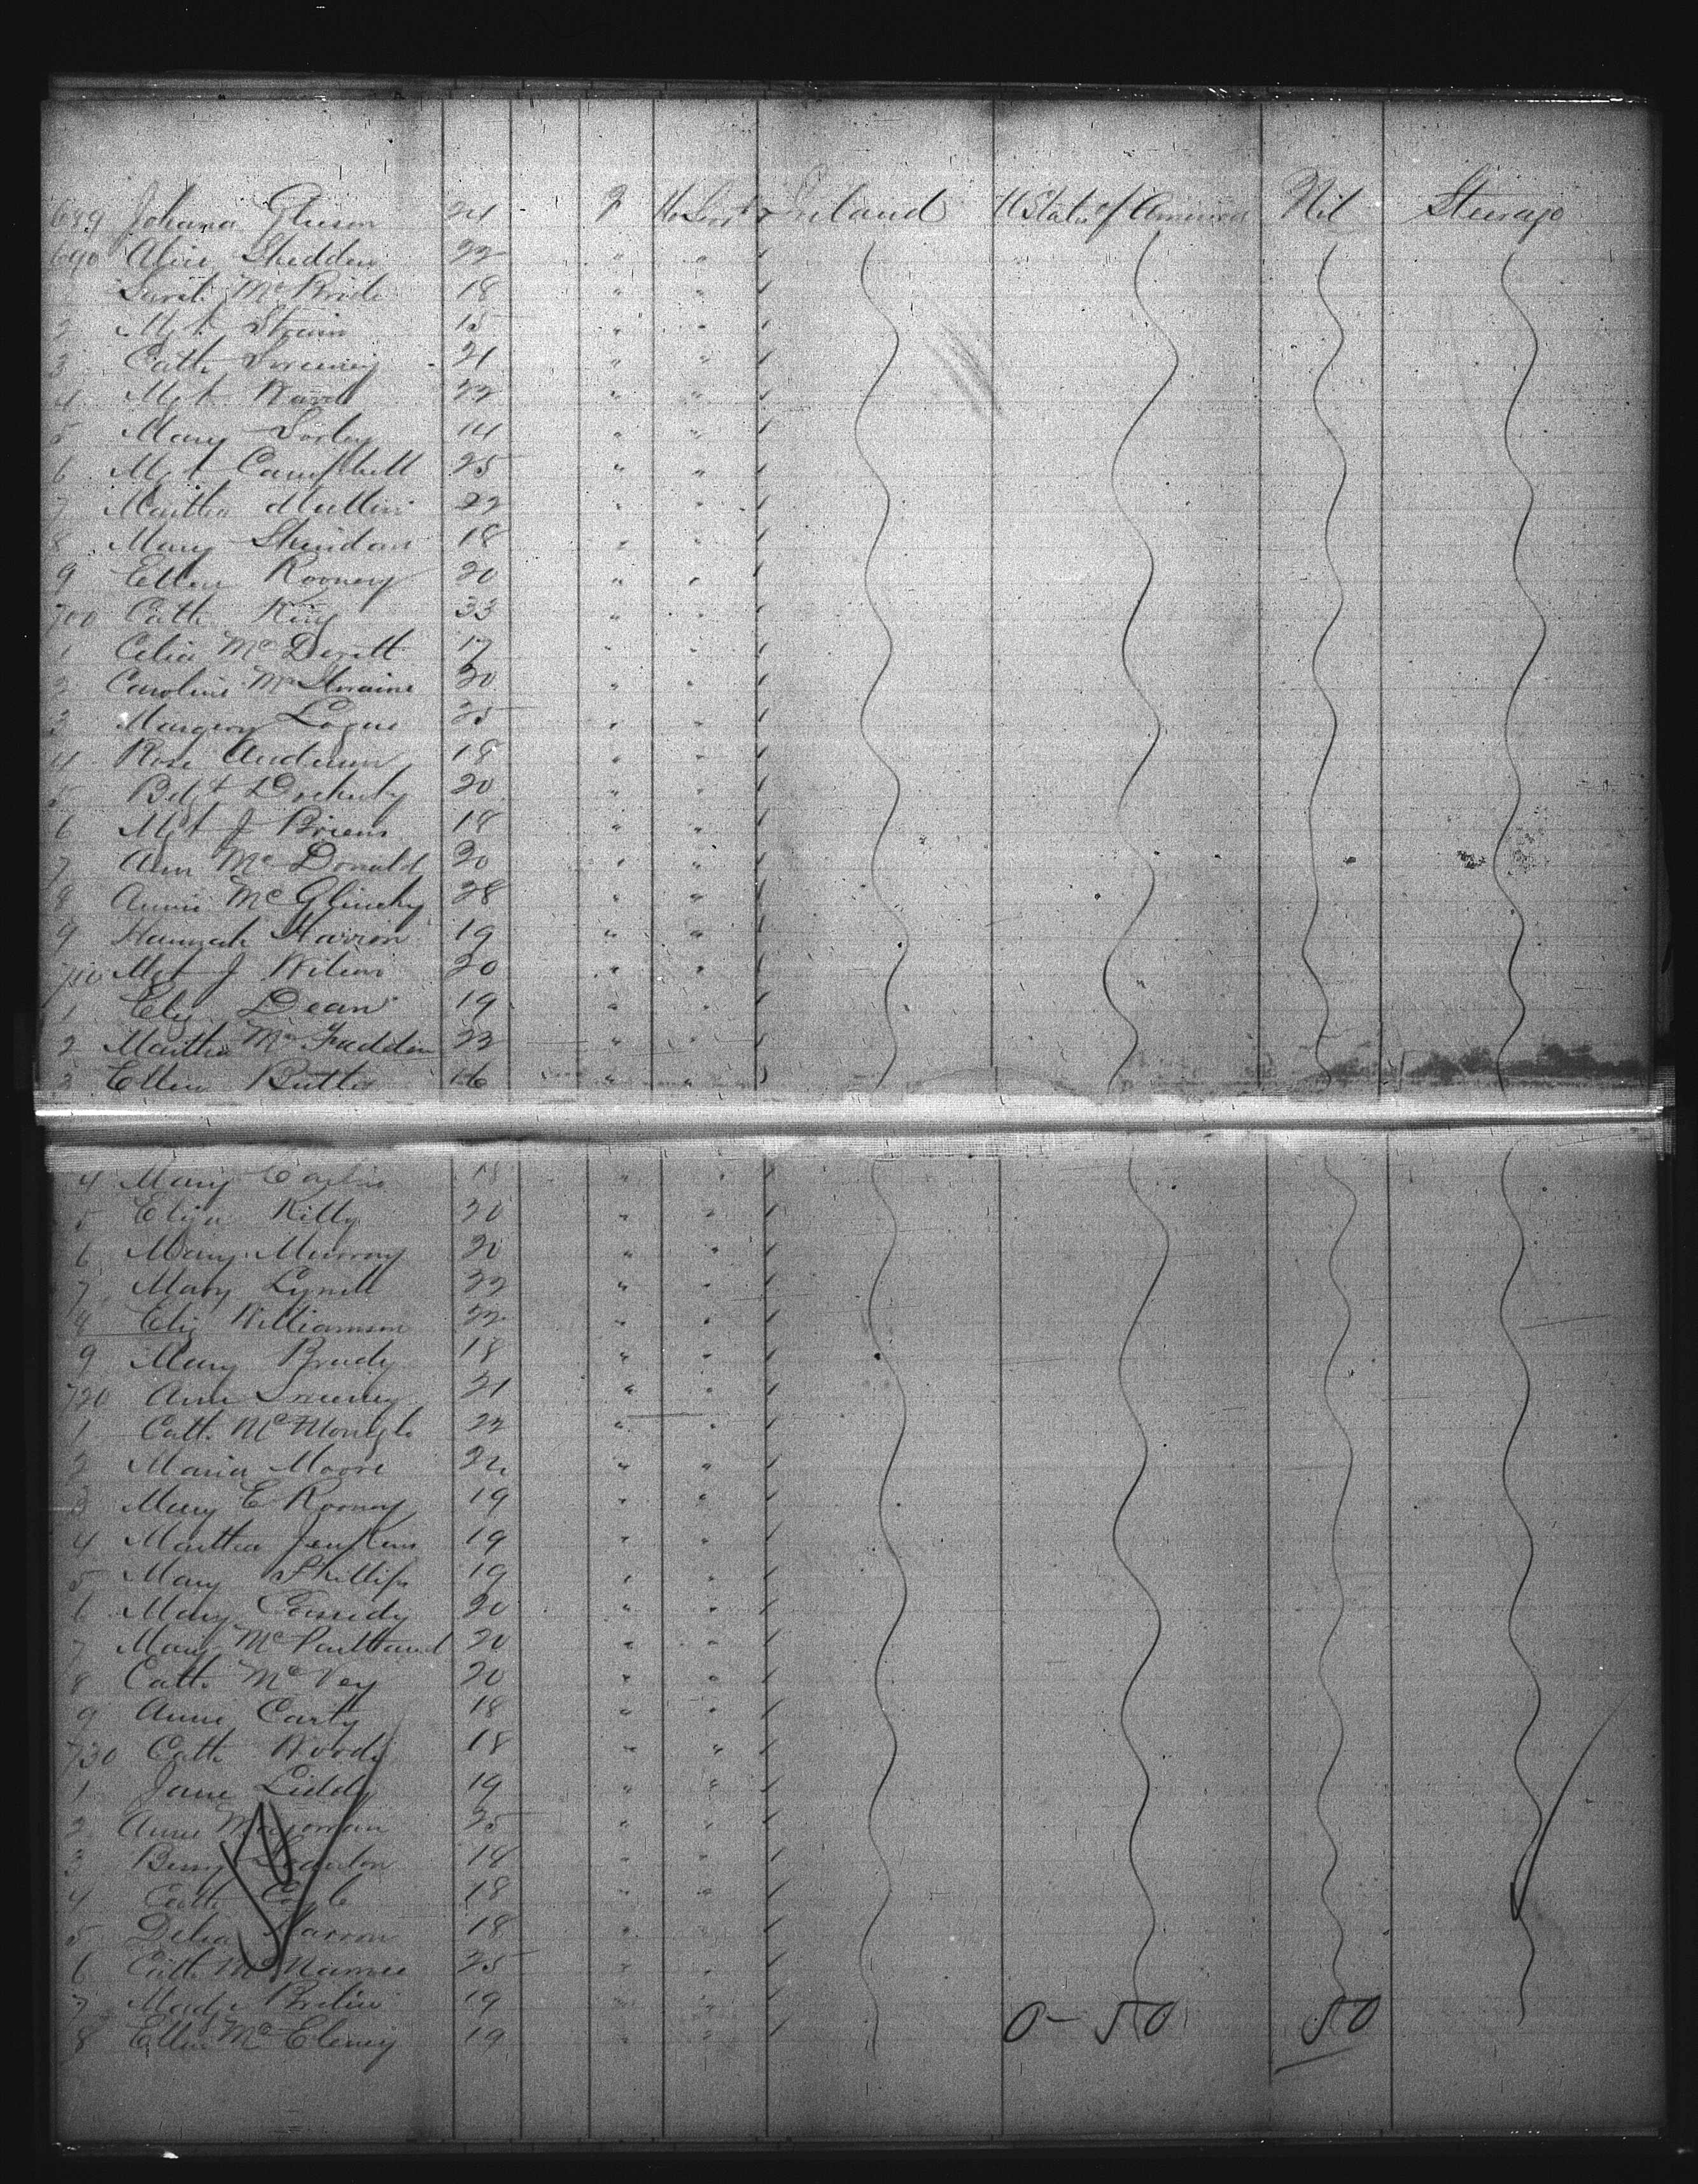 689 Johana Gleeson 24 f Ho Servt Ireland U States of America Nil Steerage
690 Alice Shedden 22 " "
1 McBride 18 " "
2 Mgt Strain 15 " "
3 Cath Sweeney 21 " "
4 Mgt Ward 22 " "
5 Mary Sorley 14 " "
6 Mgt Campbell 25 " "
7 Martha Mullin 22 " "
8 Mary Sheridan 18 " "
9 Ellen Rooney 20 " "
700 Cath King 33 " "
1 Celia McDevitt 17 " "
2 Caroline 20 " "
3 Margery Logue 25 " "
4 Rose Anderson 18 " "
5 Bdgt Docherty 20 " "
6 Mgt J 18 " "
7 Ann McDonald 20 " "
8 Annie McGlinchy 28 " "
9 Hannah Harron 19 " "
710 Mgt J Wilson 20 " "
1 Eliz Dean 19 " "
2 Martha McFadden 22 " "
3 Ellen Butler 16 " "
4 Mary Carlin 18 " "
5 Eliza Kelly 20 " "
6 Mary Murray 20 " "
7 Mary 22 " "
8 Eliz Williamson 22 " "
9 Mary Brady 18 " "
720 Ann Sweeney 21 " "
1 Cath McMonagle 22 " "
2 Maria Moore " "
3 Mary E Rooney 19 " "
4 Martha Jenkins 19 " "
5 Mary Phillips 19 " "
6 Mary Cassidy 20 " "
7 Mary McPartland 20 " "
8 Cath McVey 20 " "
9 Annie Carty 18 " "
730 Cath 18 " "
1 Jane Liddy 19 " "
2 Anne 25 " "
3 18 " "
4 Cath Coyle 18 " "
5 Delia Harron 18 " "
6 Cath McNamee 25 " "
7 Madge Breslin 19 " " 0-50 50
8 Ellen 19 " "